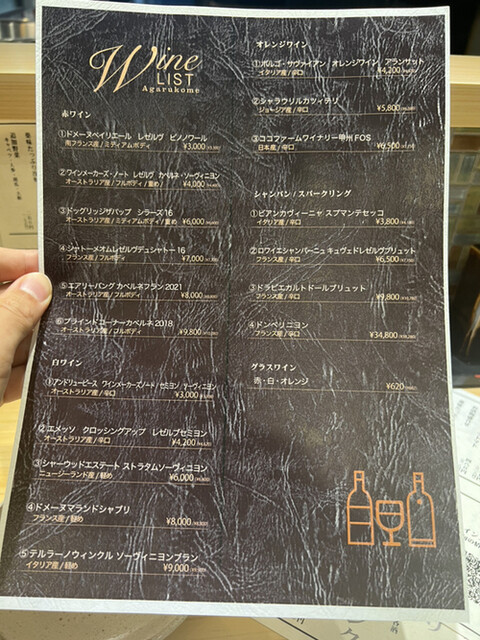 Wine
LIST
Agarukome
赤ワイン
①ドメーヌベイリエール レゼルヴ ピノノワール
南フランス産 / ミディアムボディ ¥3,000
②ワインメーカーズ・ノート レゼルヴ カベルネ・ソーヴィニヨン
オーストラリア産 / フルボディ / 重め ¥4,000
③ドッグリッジザパップ シラーズ 16
オーストラリア産 / ミディアムボディ / 重め ¥6,000
④シャトーメオムレゼルヴデュシャトー 16
フランス産 / フルボディ ¥7,000
⑤エアリーバング カベルネフラン 2021
オーストラリア産 / フルボディ ¥8,000
⑥ブラインドコーナーカベルネ 2018
オーストラリア産 / フルボディ ¥9,800
白ワイン
①アンドリューピース ワインメーカーズノート セミヨン ソーヴィニヨン
オーストラリア産 / 辛口 ¥3,000
②エメッソ クロッシングアップ レゼルブセミヨン
オーストラリア産 / 辛口 ¥4,200
③シャーウッドエステート ストラタムソーヴィニヨン
ニュージーランド産 / 軽め ¥6,000
④ドメーヌマランドシャブリ
フランス産 / 軽め ¥8,000
⑤テルラーノウィンクル ソーヴィニヨンブラン
イタリア産 / 軽め ¥9,000
オレンジワイン
①ボルゴ・サヴァイアン オレンジワイン アランサット
イタリア産 / 辛口 ¥4,200
②シャラウリルカツィテリ
ジョージア産 / 辛口 ¥5,800
③ココファームワイナリー甲州 FOS
日本産 / 辛口 ¥6,500
シャンパン / スパークリング
①ビアンカヴィーニャ スプマンテセッコ
イタリア産 / 辛口 ¥3,800
②ロワイエシャンパーニュ キュヴェドレゼルブブリュット
フランス産 / 辛口 ¥6,500
③ドラピエカルトドールブリュット
フランス産 / 辛口 ¥9,800
④ドンペリニヨン
フランス産 / 辛口 ¥34,800
グラスワイン
赤・白・オレンジ ¥620
追加野菜